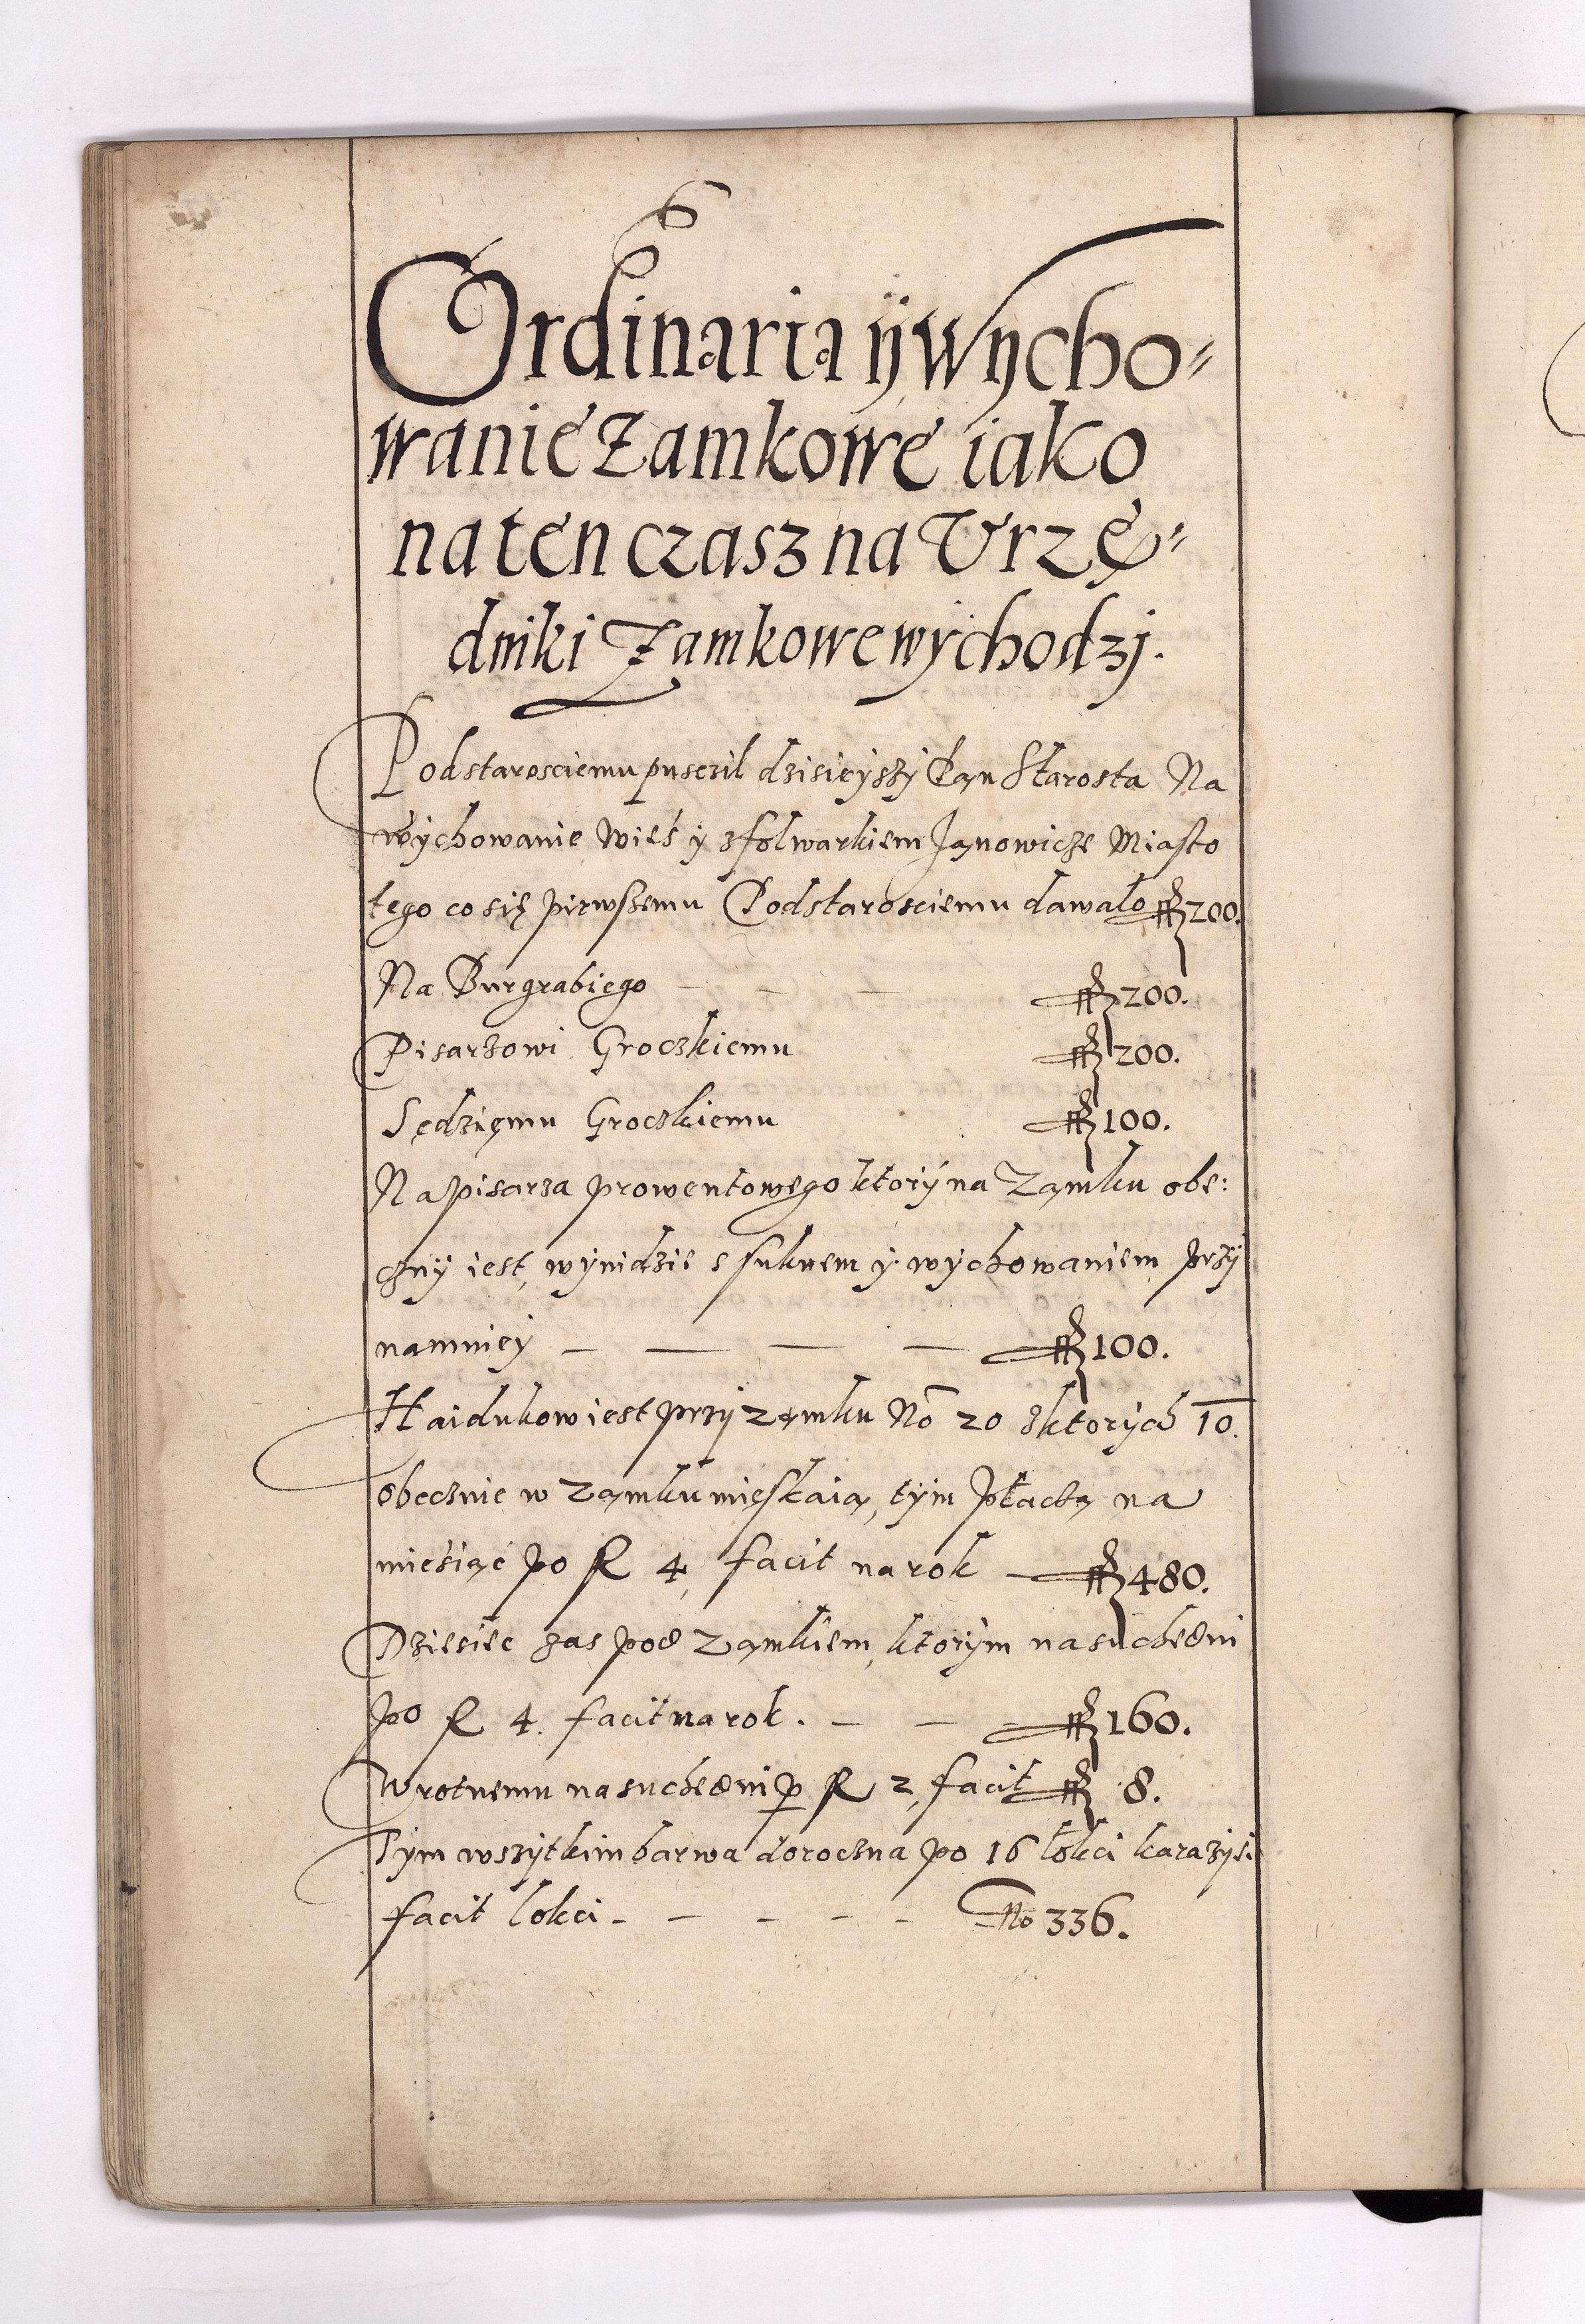 Ordinaria ÿ wycho=
wanie Zamkowe iako
na ten czasz na Vrzę=
dniki Zamkowe wychodzi.
Podstarosciemu pusczil dzisieyszy Pan Starosta Na
wychowanie wieś y z folwarkiem Janowicze Miasto
tego co się pirwszemu Podstarosciemu dawało fl 200.
Na Burgrabiego fl 200.
Pisarzowi Groczkiemu fl 200.
Sędziemu Groczkiemu fl 100.
Na pisarza prowentowego ktorÿ na Zamku obe:
czny iest, wynidzie s suknem y wychowaniem przÿ
namniey fl 100.
Haidukow iest przÿ zamku No 20 z ktorych 10.
obecznie w Zamku mieskaią, tÿm płaczą na
miesiąć po fl 4, facit na rok fl 480.
Dziesiec zas pod Zamkiem, ktorÿm na suchedni
po fl 4. facit na rok. fl 160.
Wrotnemu na suchedni p fl 2, facit fl 8.
Tÿm wszytkim barwa doroczna po 16 łokci karazÿi.
facit łokci No 336.